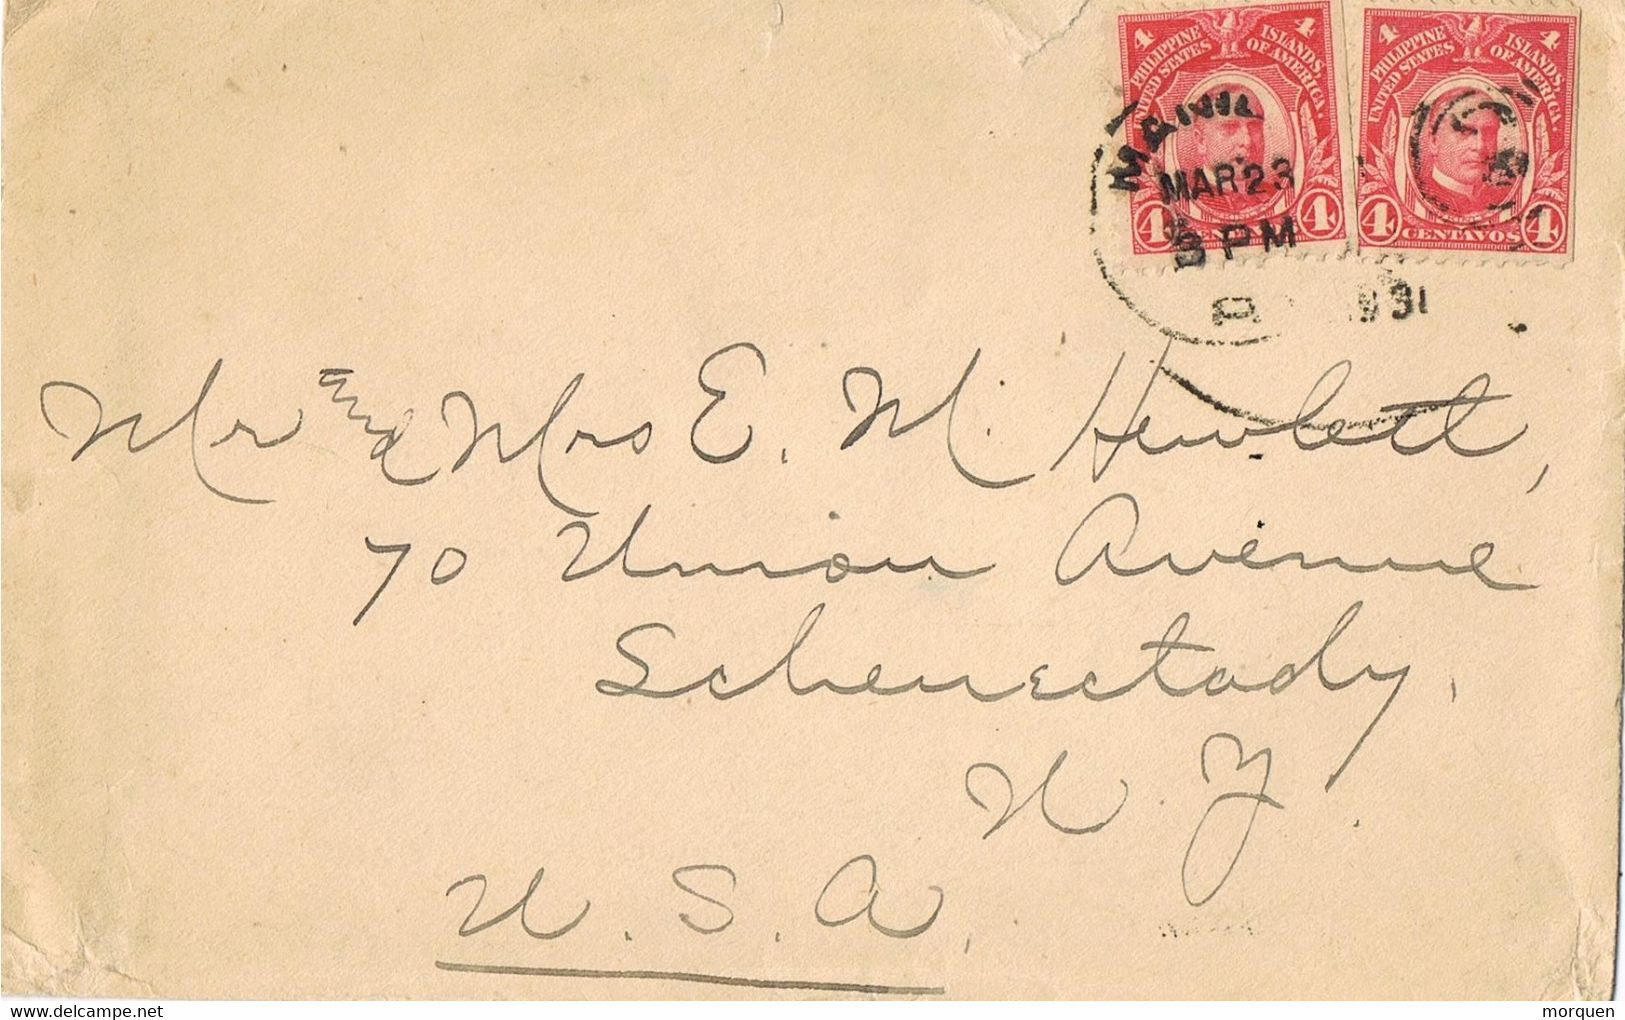 4 PHILIPPINE ISLANDS 4
UNITED STATES OF AMERICA
4 4
4 PHILIPPINE ISLANDS 4
UNITED STATES OF AMERICA
4 CENTAVOS 4
MAR 23
3 PM
Mr and Mrs E. M. Hewlett,
70 Union Avenue
Schenectady,
N. Y.
U. S. A.
morquen